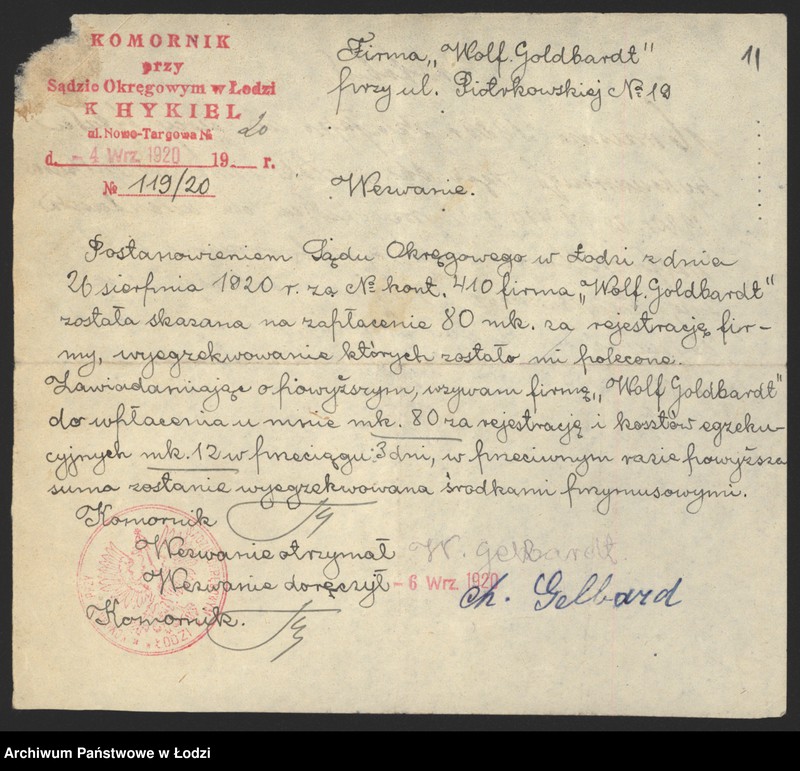 KOMORNIK
przy
Sądzie Okręgowym w Łodzi
K HYKIEL
ul. Nowo-Targowa № 20
d. - 4 Wrz. 1920 19 r.
№ 119/20
Firma „Wolf. Goldbardt"
przy ul. Piotrkowskiej № 19
11
Wezwanie.
Postanowieniem Sądu Okręgowego w Łodzi z dnia
26 sierpnia 1920 r. za № kont. 410 firma „Wolf. Goldbardt"
została skazana na zapłacenie 80 mk. za rejestrację fir-
my, wyegzekwowanie których zostało mi polecone.
Zawiadamiając o powyższym, wzywam firmę „Wolf Goldbardt"
do wpłacenia u mnie mk. 80 za rejestrację i kosztów egzeku-
cyjnych mk. 12 w przeciągu 3 dni, w przeciwnym razie powyższa
suma zostanie wyegzekwowana środkami przymusowymi.
Komornik
Wezwanie otrzymał W. Gelbardt.
Wezwanie doręczył - 6 Wrz. 1920 Ch. Gelbard
Komornik.
Archiwum Państwowe w Łodzi